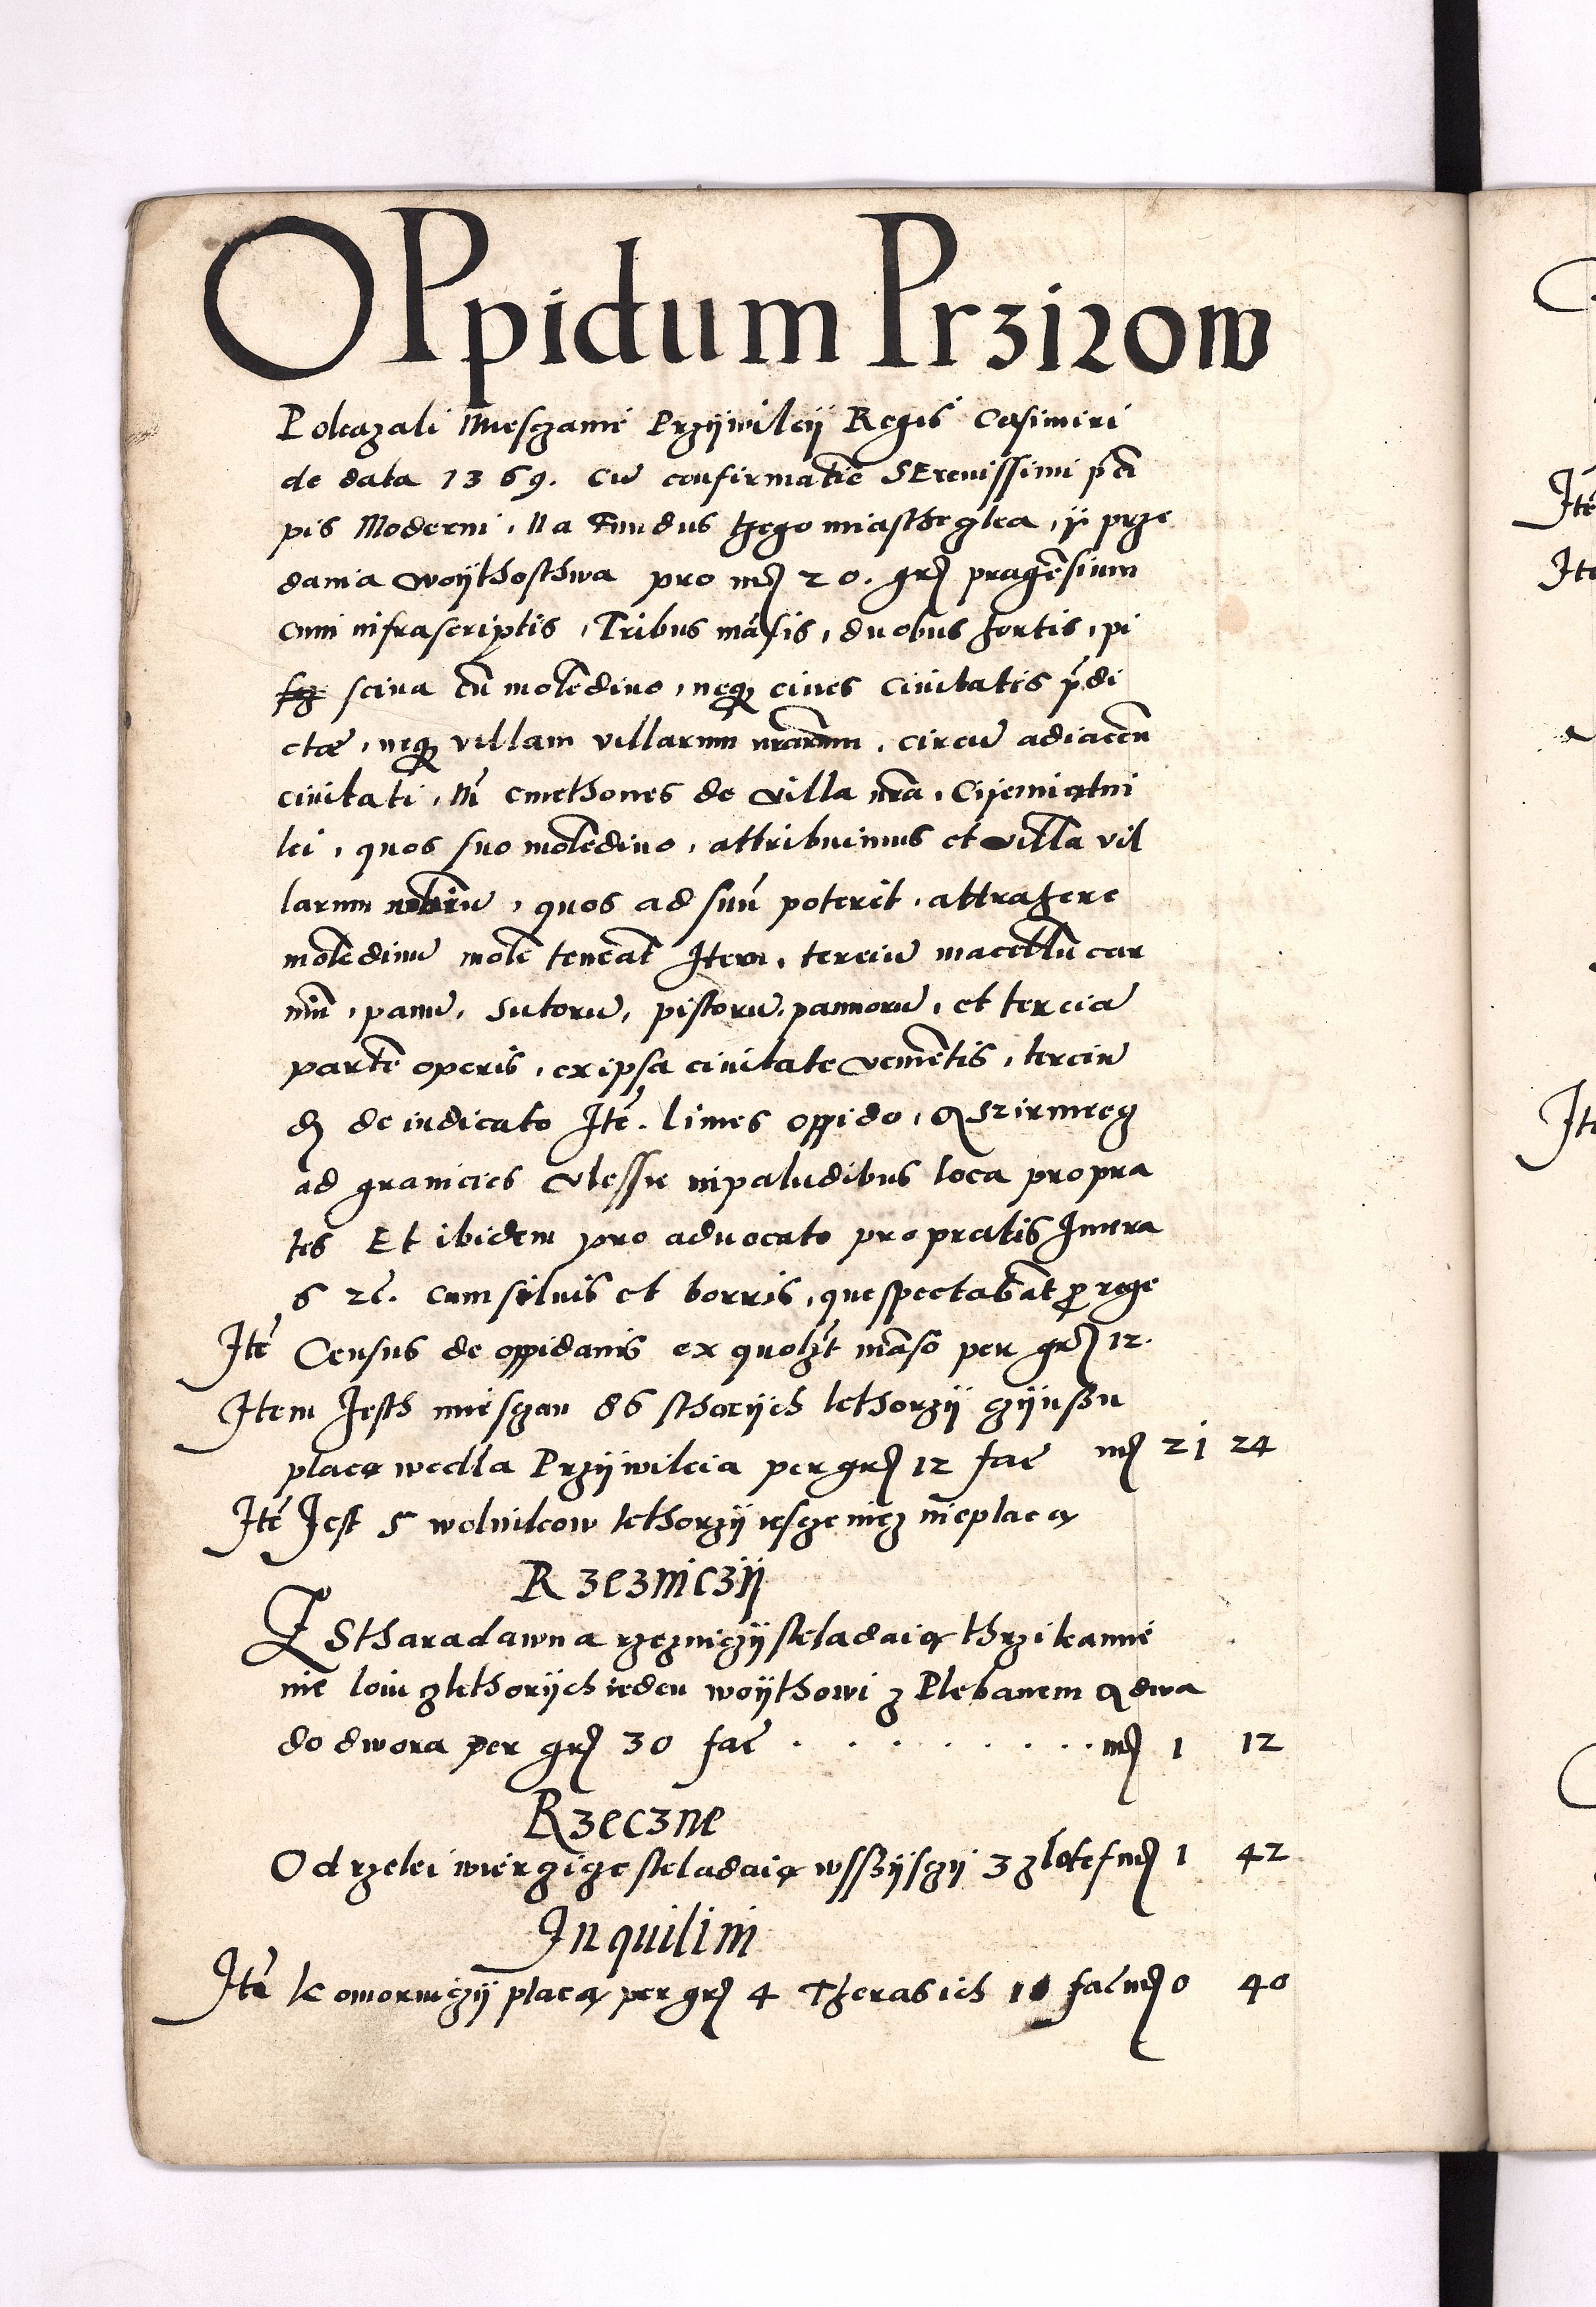 OPpidum Przirow
Pokazali Miesczanie Przÿwileÿ Regis Casimiri
de data 1369. Cū confirmatiē SErenissimi pⁿci
pis Moderni, Na Fundus tzego miastheczka, ÿ prze
dania woÿthosthwa pro mṛ 20. grͦ pragēsium
cum infrascriptis, Tribus māsis, duobus hortis, pi
scina cū molēdino, neqʒ ciues Ciuitatis p̄di
ctæ, neqʒ villam villarum nr̄arum, circū adiacen̄
ciuitati, Nⁱ cmethones de villa nr̄a,
lei, quos suo molēdino, attribuimus et villa vil
larum quos ad suū poterit, attrahere
molēdinū mole teneāt Item, terciū macellū car
niū, panū, Sutorū, pistorū, pannorū, et terciā
partē operis, ex ipsa ciuitate veniētis, terciū
dʒ de iudicato Itē. limes oppido,
ad granicies Olessie in paludibus loca pro pra
tis Et ibidem pro aduocato pro pratis Iugera
6 rē. cum siluis et borris, que spectabāt ꝑ rege
Itē Census de oppidanis ex quolꝫt māso per grͦ 12.
Item Jesth miesczan 86 stharÿch kthorzÿ czÿnszu
placą wedla Przÿwileia per grͦ 12 fac̄ mṛ 21 24
Itē Jest 5 wolnikow kthorzÿ iescze nicz nieplacą
Rzezniczÿ
Z Stharadawna rzezniczÿ skladaią thrzi kamie
nie loiu z kthorÿch ieden woÿthowi z Plebanem a dwa
do dwora per grͦ 30 fac̄ . . . . . . . . mṛ 1 12
Rzeczne
Od rzeki wierzicze skladaią wsszÿsczÿ 3 zlote f mṛ 1 42
Inquilini
Itē komorniczÿ placą per grͦ 4 Theras ich 10 fac̄ mṛ 0 40